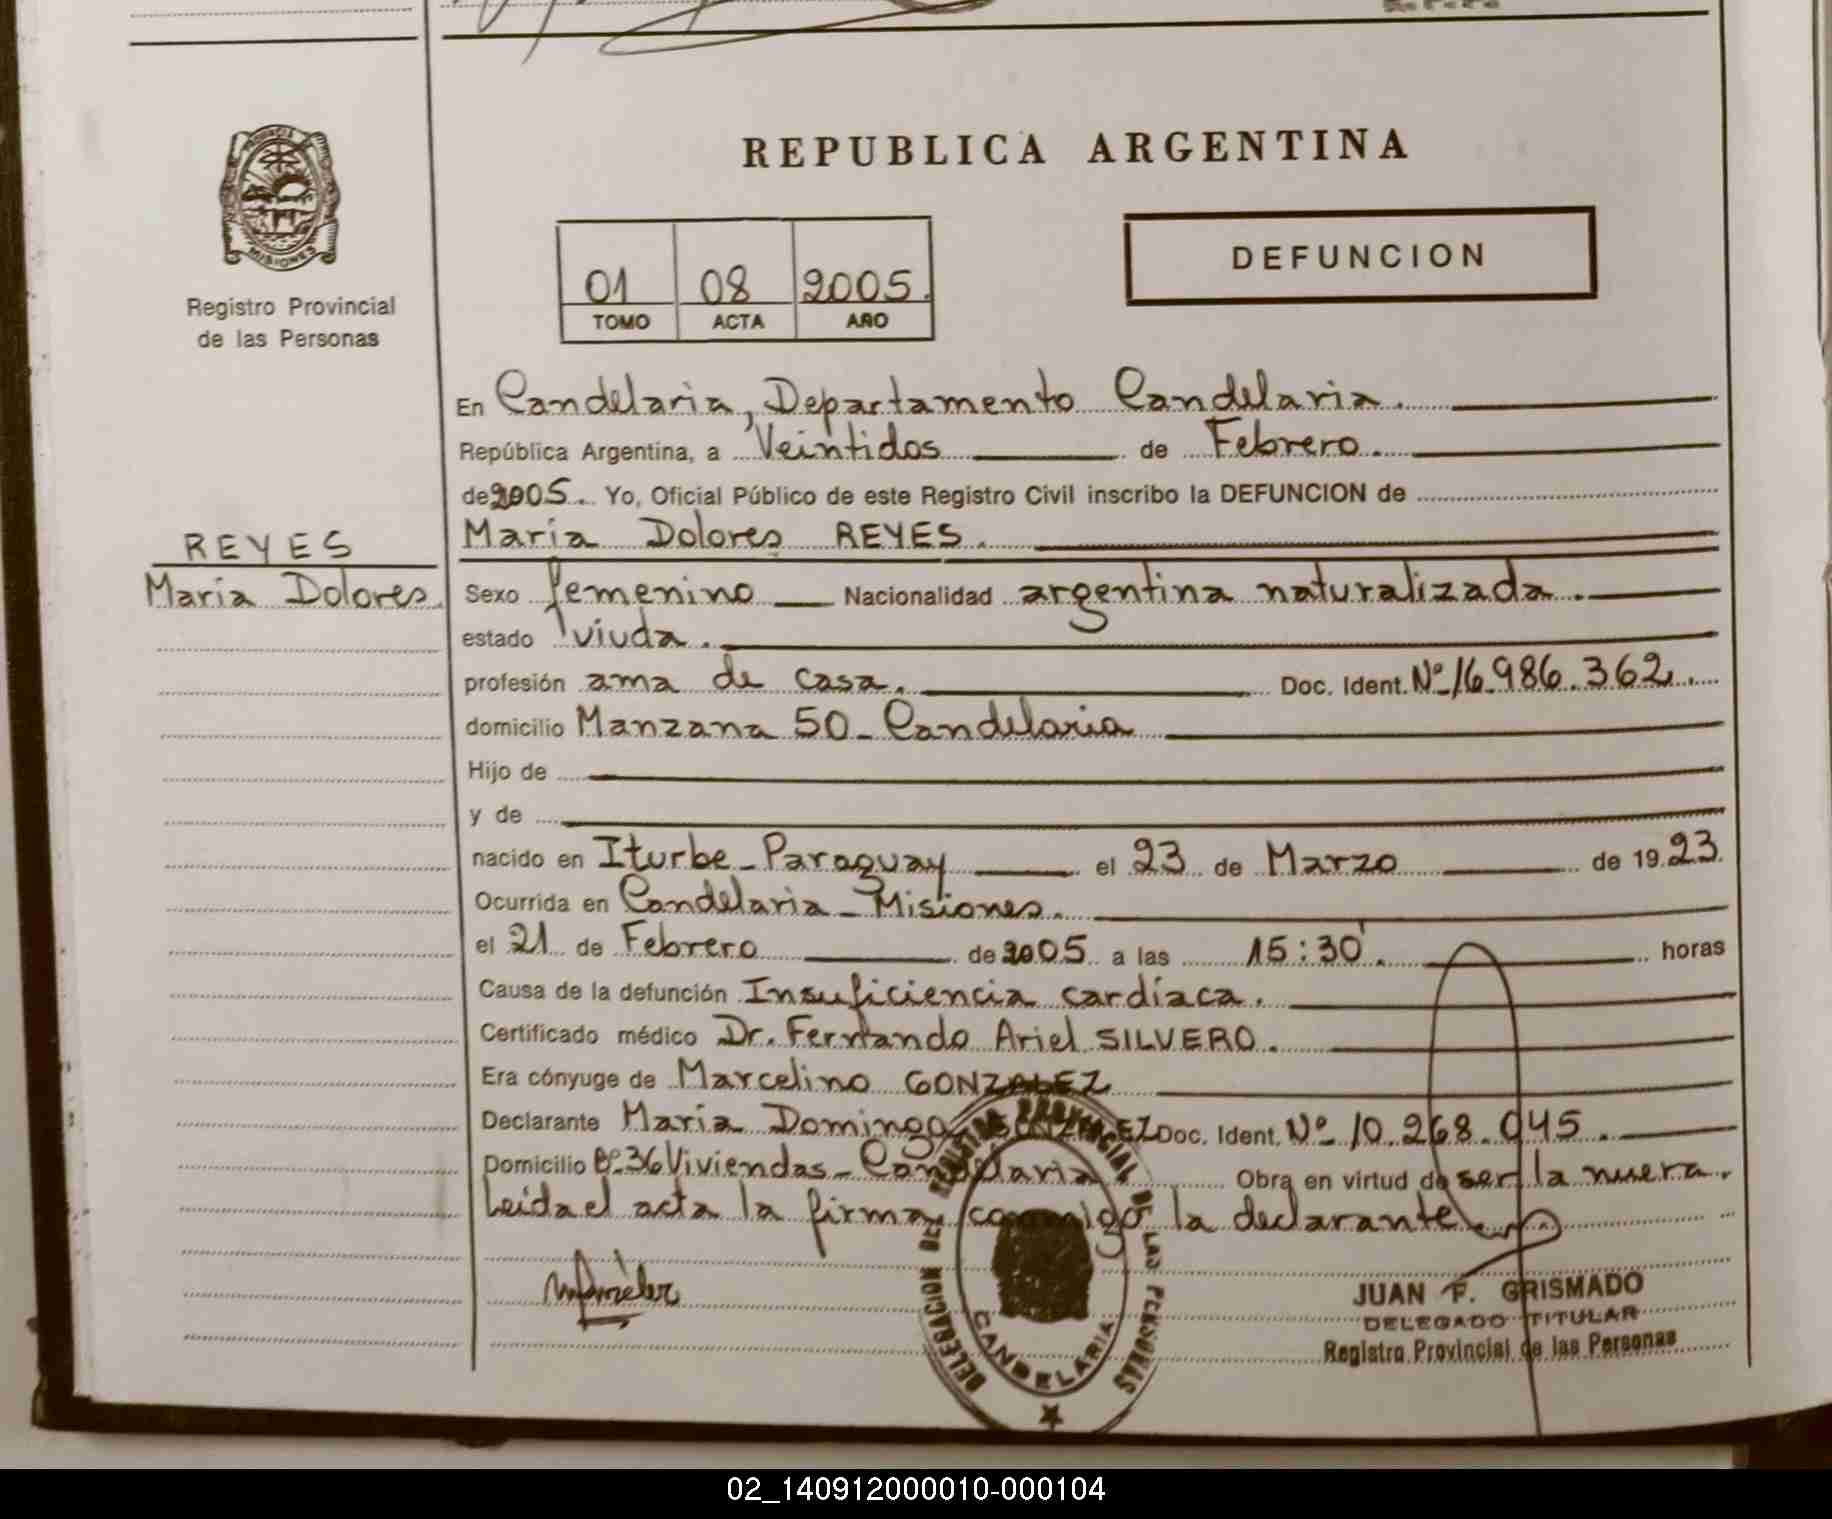 REPUBLICA ARGENTINA
PROVINCIA
MISIONES
Registro Provincial
de las Personas
01 08 2005.
TOMO ACTA AÑO
DEFUNCION
En Candelaria, Departamento Candelaria.
República Argentina, a Veintidos de Febrero.
de 2005. Yo, Oficial Público de este Registro Civil inscribo la DEFUNCION de
María Dolores REYES.
REYES
María Dolores.
Sexo femenino Nacionalidad argentina naturalizada.
estado viuda.
profesión ama de casa. Doc. Ident. Nº 16.986.362.
domicilio Manzana 50- Candelaria
Hijo de
y de
nacido en Iturbe- Paraguay el 23 de Marzo de 1923.
Ocurrida en Candelaria- Misiones.
el 21 de Febrero de 2005 a las 15:30'. horas
Causa de la defunción Insuficiencia cardíaca.
Certificado médico Dr. Fernando Ariel SILVERO.
Era cónyuge de Marcelino GONZALEZ
Declarante María Dominga GONZALEZ Doc. Ident. Nº 10.268.045.
Domicilio Bº. 36 Viviendas- Candelaria Obra en virtud de ser la nuera.
Leida el acta la firma conmigo la declarante.
DELEGACION DEL REGISTRO PROVINCIAL DE LAS PERSONAS
CANDELARIA
JUAN F. GRISMADO
DELEGADO TITULAR
Registro Provincial de las Personas
02_140912000010-000104